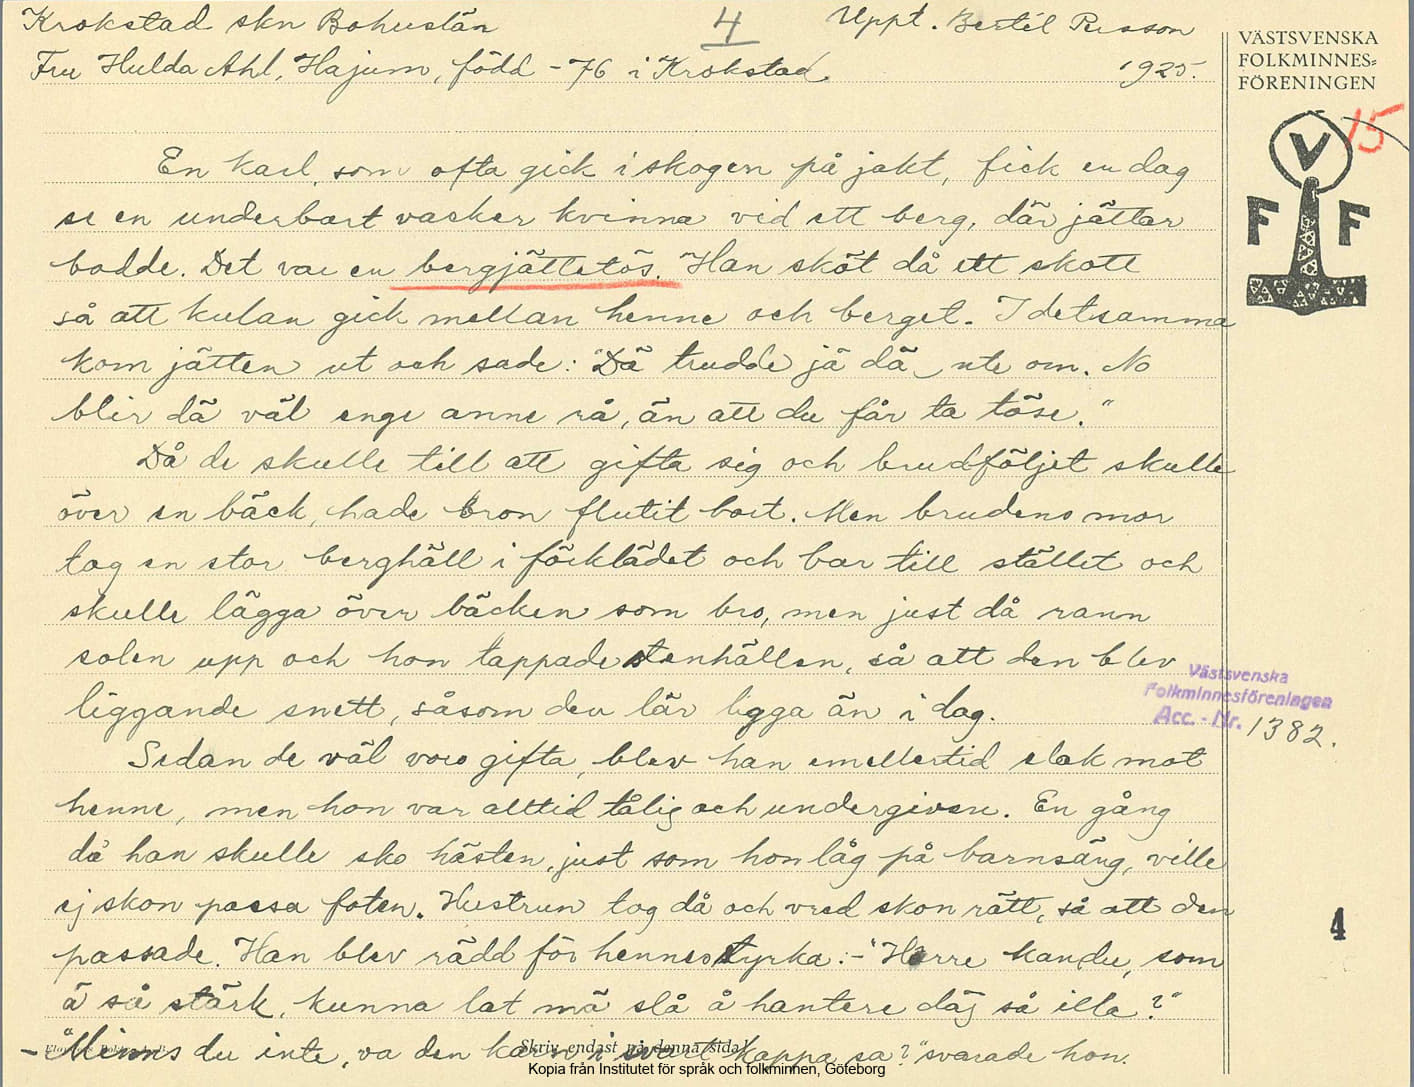 Krokstad skn Bohuslän
4
Uppt. Bertil Persson
Fru Hulda Ahl, Hajum, född -76 i Krokstad.
1925.
VÄSTSVENSKA
FOLKMINNES=
FÖRENINGEN
15
V
F F
En karl, som ofta gick i skogen på jakt, fick en dag
se en underbart vacker kvinna vid ett berg, där jättar
bodde. Det var en bergjättetös. Han sköt då ett skott
så att kulan gick mellan henne och berget. I detsamma
kom jätten ut och sade: "Dä trudde jä dä ute om. No
blir dä väl enge anne rå, än att du får ta töse."
Då de skulle till att gifta sig och brudföljet skulle
över en bäck, hade bron flutit bort. Men brudens mor
tog en stor berghäll i förklädet och bar till stället och
skulle lägga över bäcken som bro, men just då rann
solen upp och hon tappade stenhällen, så att den blev
liggande snett, såsom den lär ligga än i dag.
Västsvenska
Folkminnesföreningen
Acc. - Nr. 1382.
Sedan de väl voro gifta, blev han emellertid elak mot
henne, men hon var alltid tålig och undergiven. En gång
då han skulle sko hästen, just som hon låg på barnsäng, ville
ej skon passa foten. Hustrun tog då och vred skon rätt, så att den
passade. Han blev rädd för hennes styrka: - "Horre kan du, som
ä så stärk, kunna lat mä slå å hantere däj så illa?"
- "Minns du inte, va den kärn i svart kappa sa?" svarade hon.
4
Skriv endast på denna sida!
Kopia från Institutet för språk och folkminnen, Göteborg